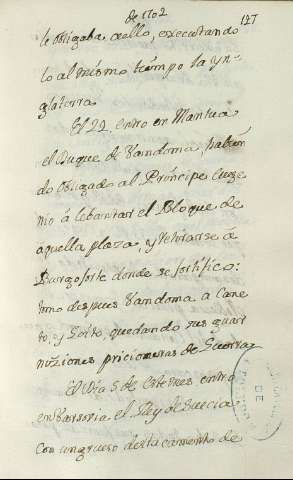 de 1702
127
le obligaba aello, executando
lo al mismo tiempo la yn-
glaterra
El 22 entro en Mantua
el Duque de Vandoma, habien
do obligado al Principe Euge
nio á lebantar el Bloque de
aquella plaza, y retirarse a
Burgoforte donde se fortifico:
tomo despues Vandoma a Cane
to, y Goito, quedando sus guar
niziones pricioneras de Guerra
El Dia 5 de este mes entro
en Varsovia el Rey de Suecia
con un grueso destacamento de
DE